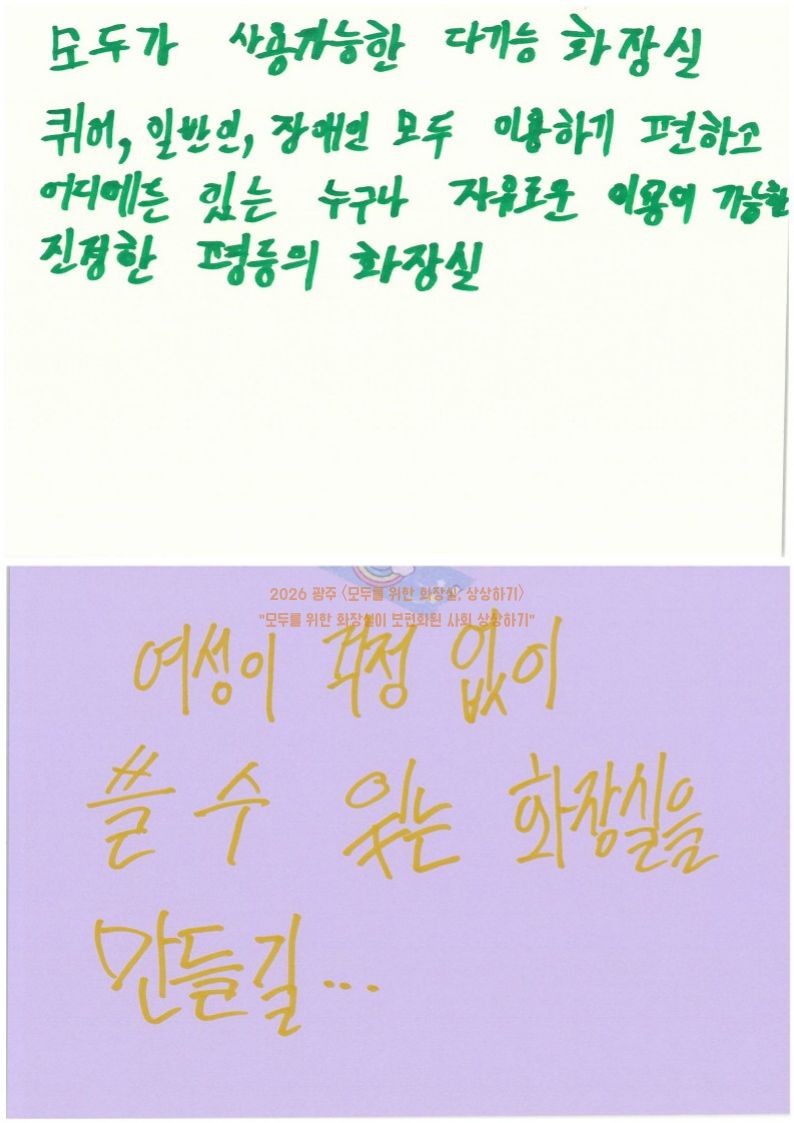 모두가 사용가능한 다기능 화장실
퀴어, 일반인, 장애인 모두 이용하기 편하고
어디에든 있는 누구나 자유로운 이용이 가능한
진정한 평등의 화장실
2026 광주 〈모두를 위한 화장실, 상상하기〉
"모두를 위한 화장실이 보편화된 사회 상상하기"
여성이 걱정 없이
쓸 수 있는 화장실을
만들길...